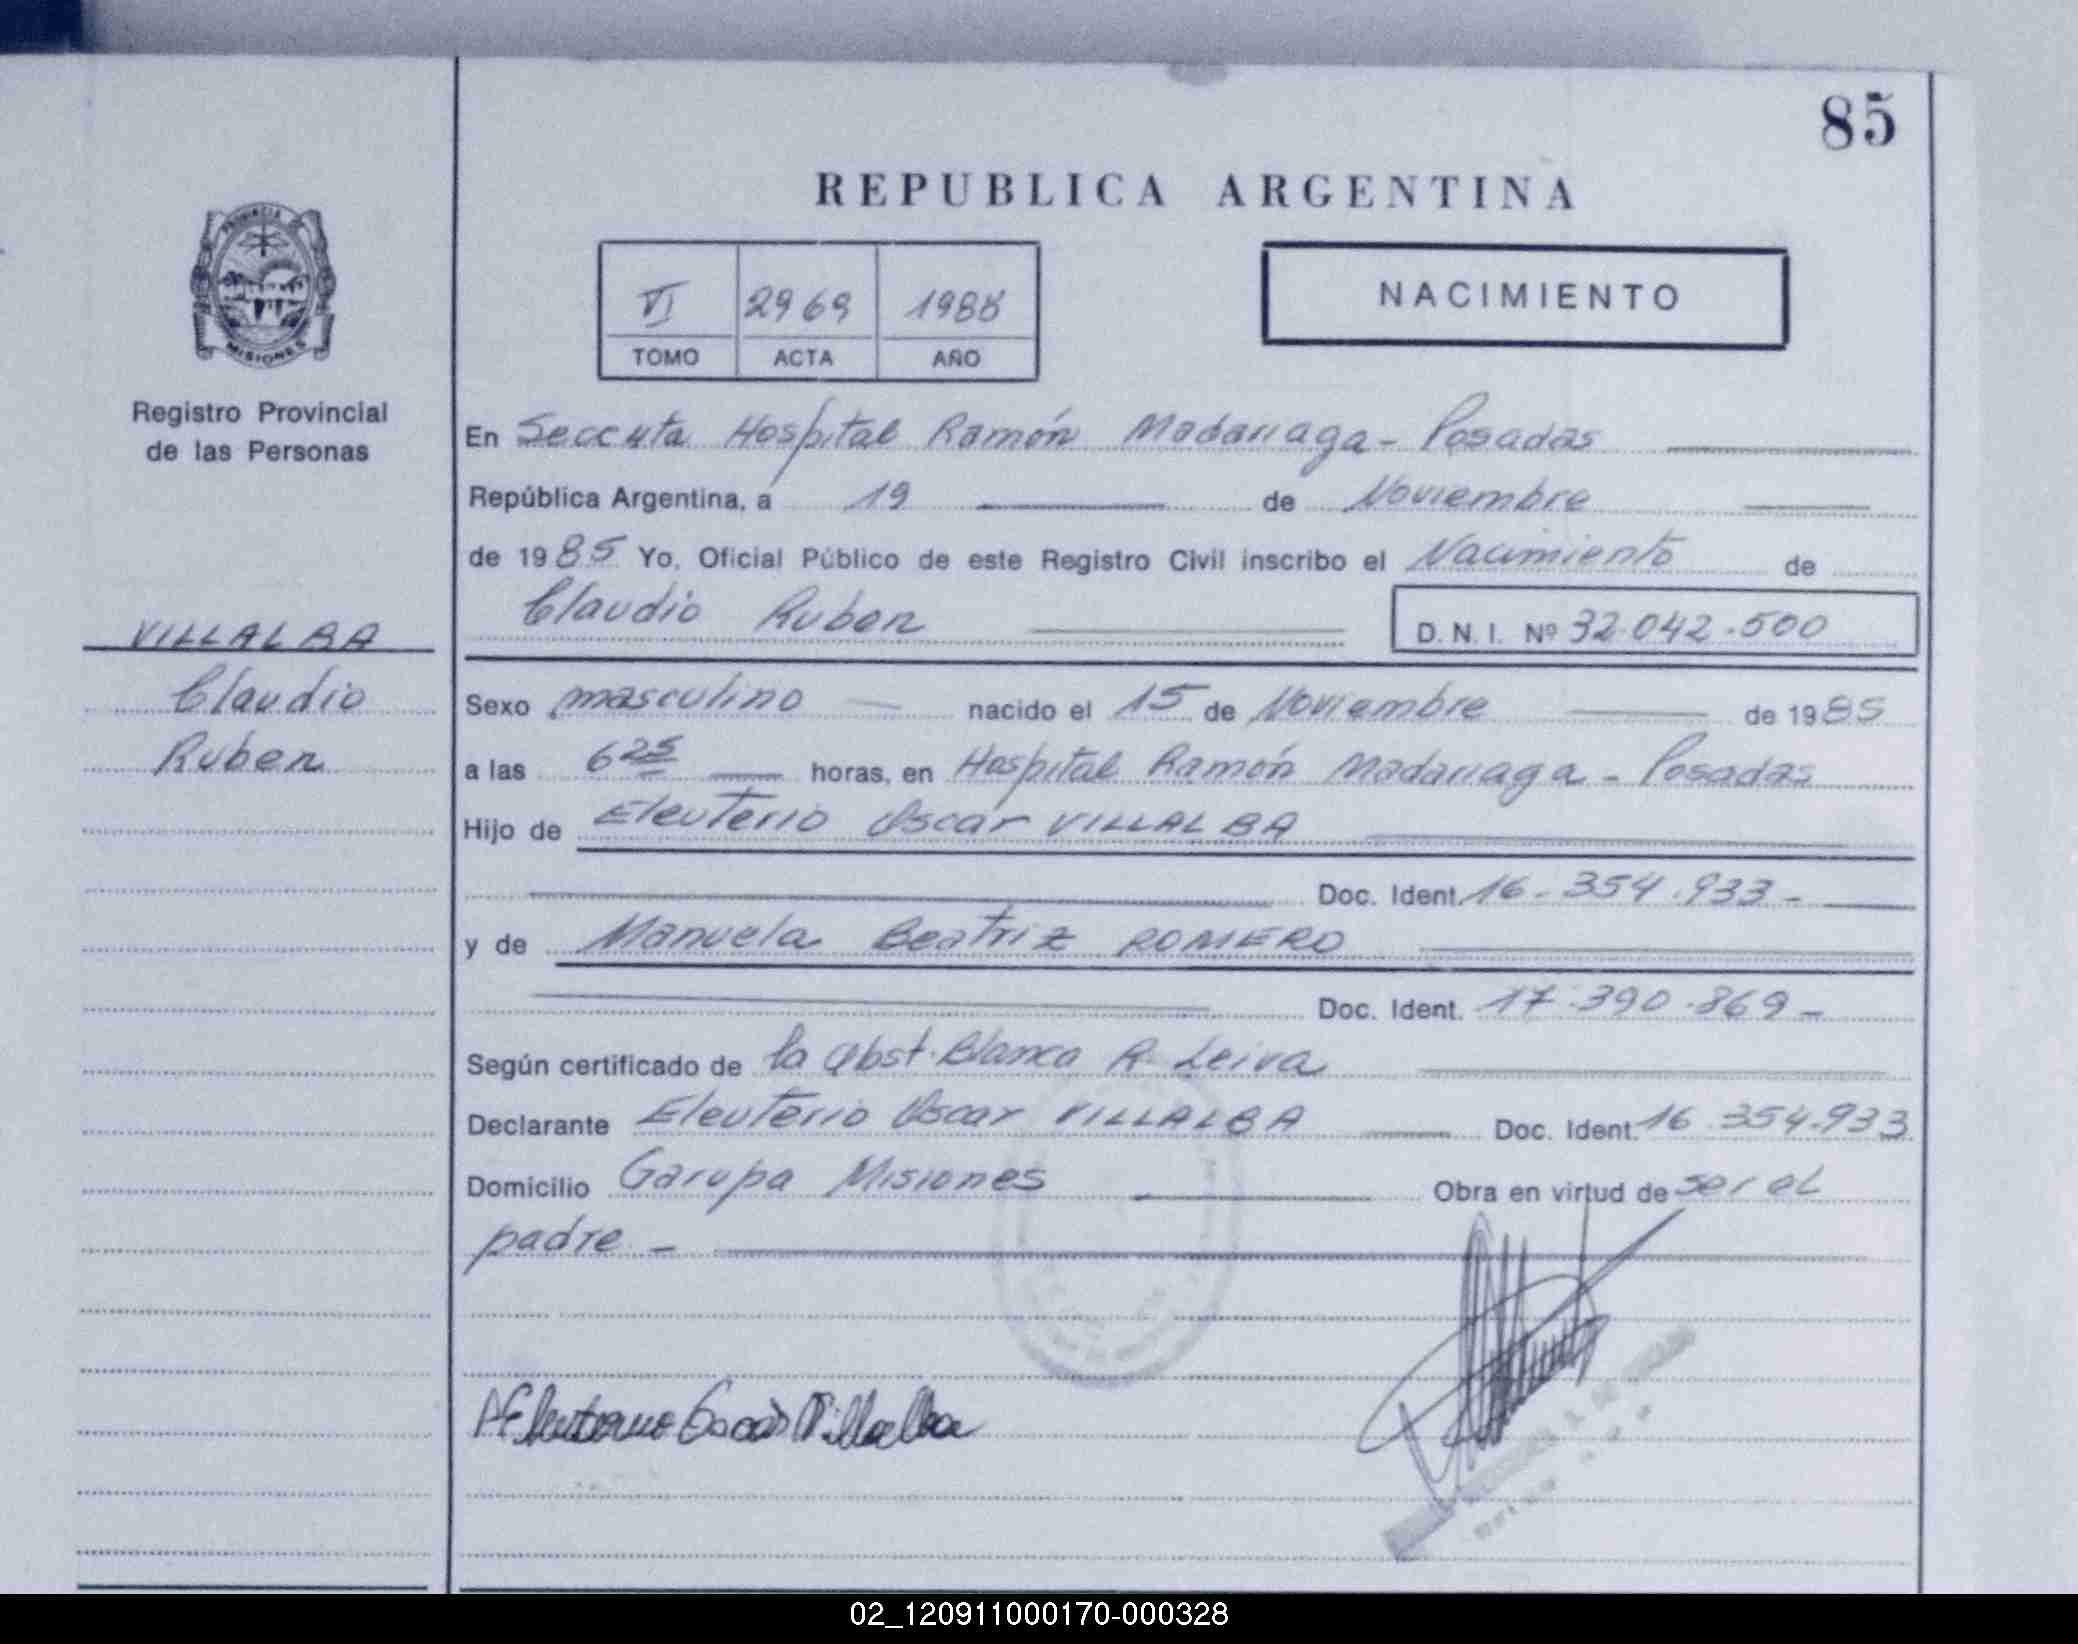 85
REPUBLICA ARGENTINA
PROVINCIA DE
MISIONES
VI 2969 1985
TOMO ACTA AÑO
NACIMIENTO
Registro Provincial
de las Personas
VILLALBA
Claudio
Ruben
En Seccuta Hospital Ramón Madariaga - Posadas
República Argentina, a 19 de Noviembre
de 1985 Yo, Oficial Público de este Registro Civil inscribo el Nacimiento de
Claudio Ruben D. N. I. Nº 32.042.500
Sexo masculino nacido el 15 de Noviembre de 1985
a las 6 25 horas, en Hospital Ramón Madariaga - Posadas
Hijo de Eleuterio Oscar VILLALBA
Doc. Ident. 16.354.933 -
y de Manuela Beatriz ROMERO
Doc. Ident. 17.390.869 -
Según certificado de la Obst. Blanca R. Leiva
Declarante Eleuterio Oscar VILLALBA Doc. Ident. 16.354.933
Domicilio Garupa Misiones Obra en virtud de ser el
padre -
Eleuterio Oscar Villalba
02_120911000170-000328